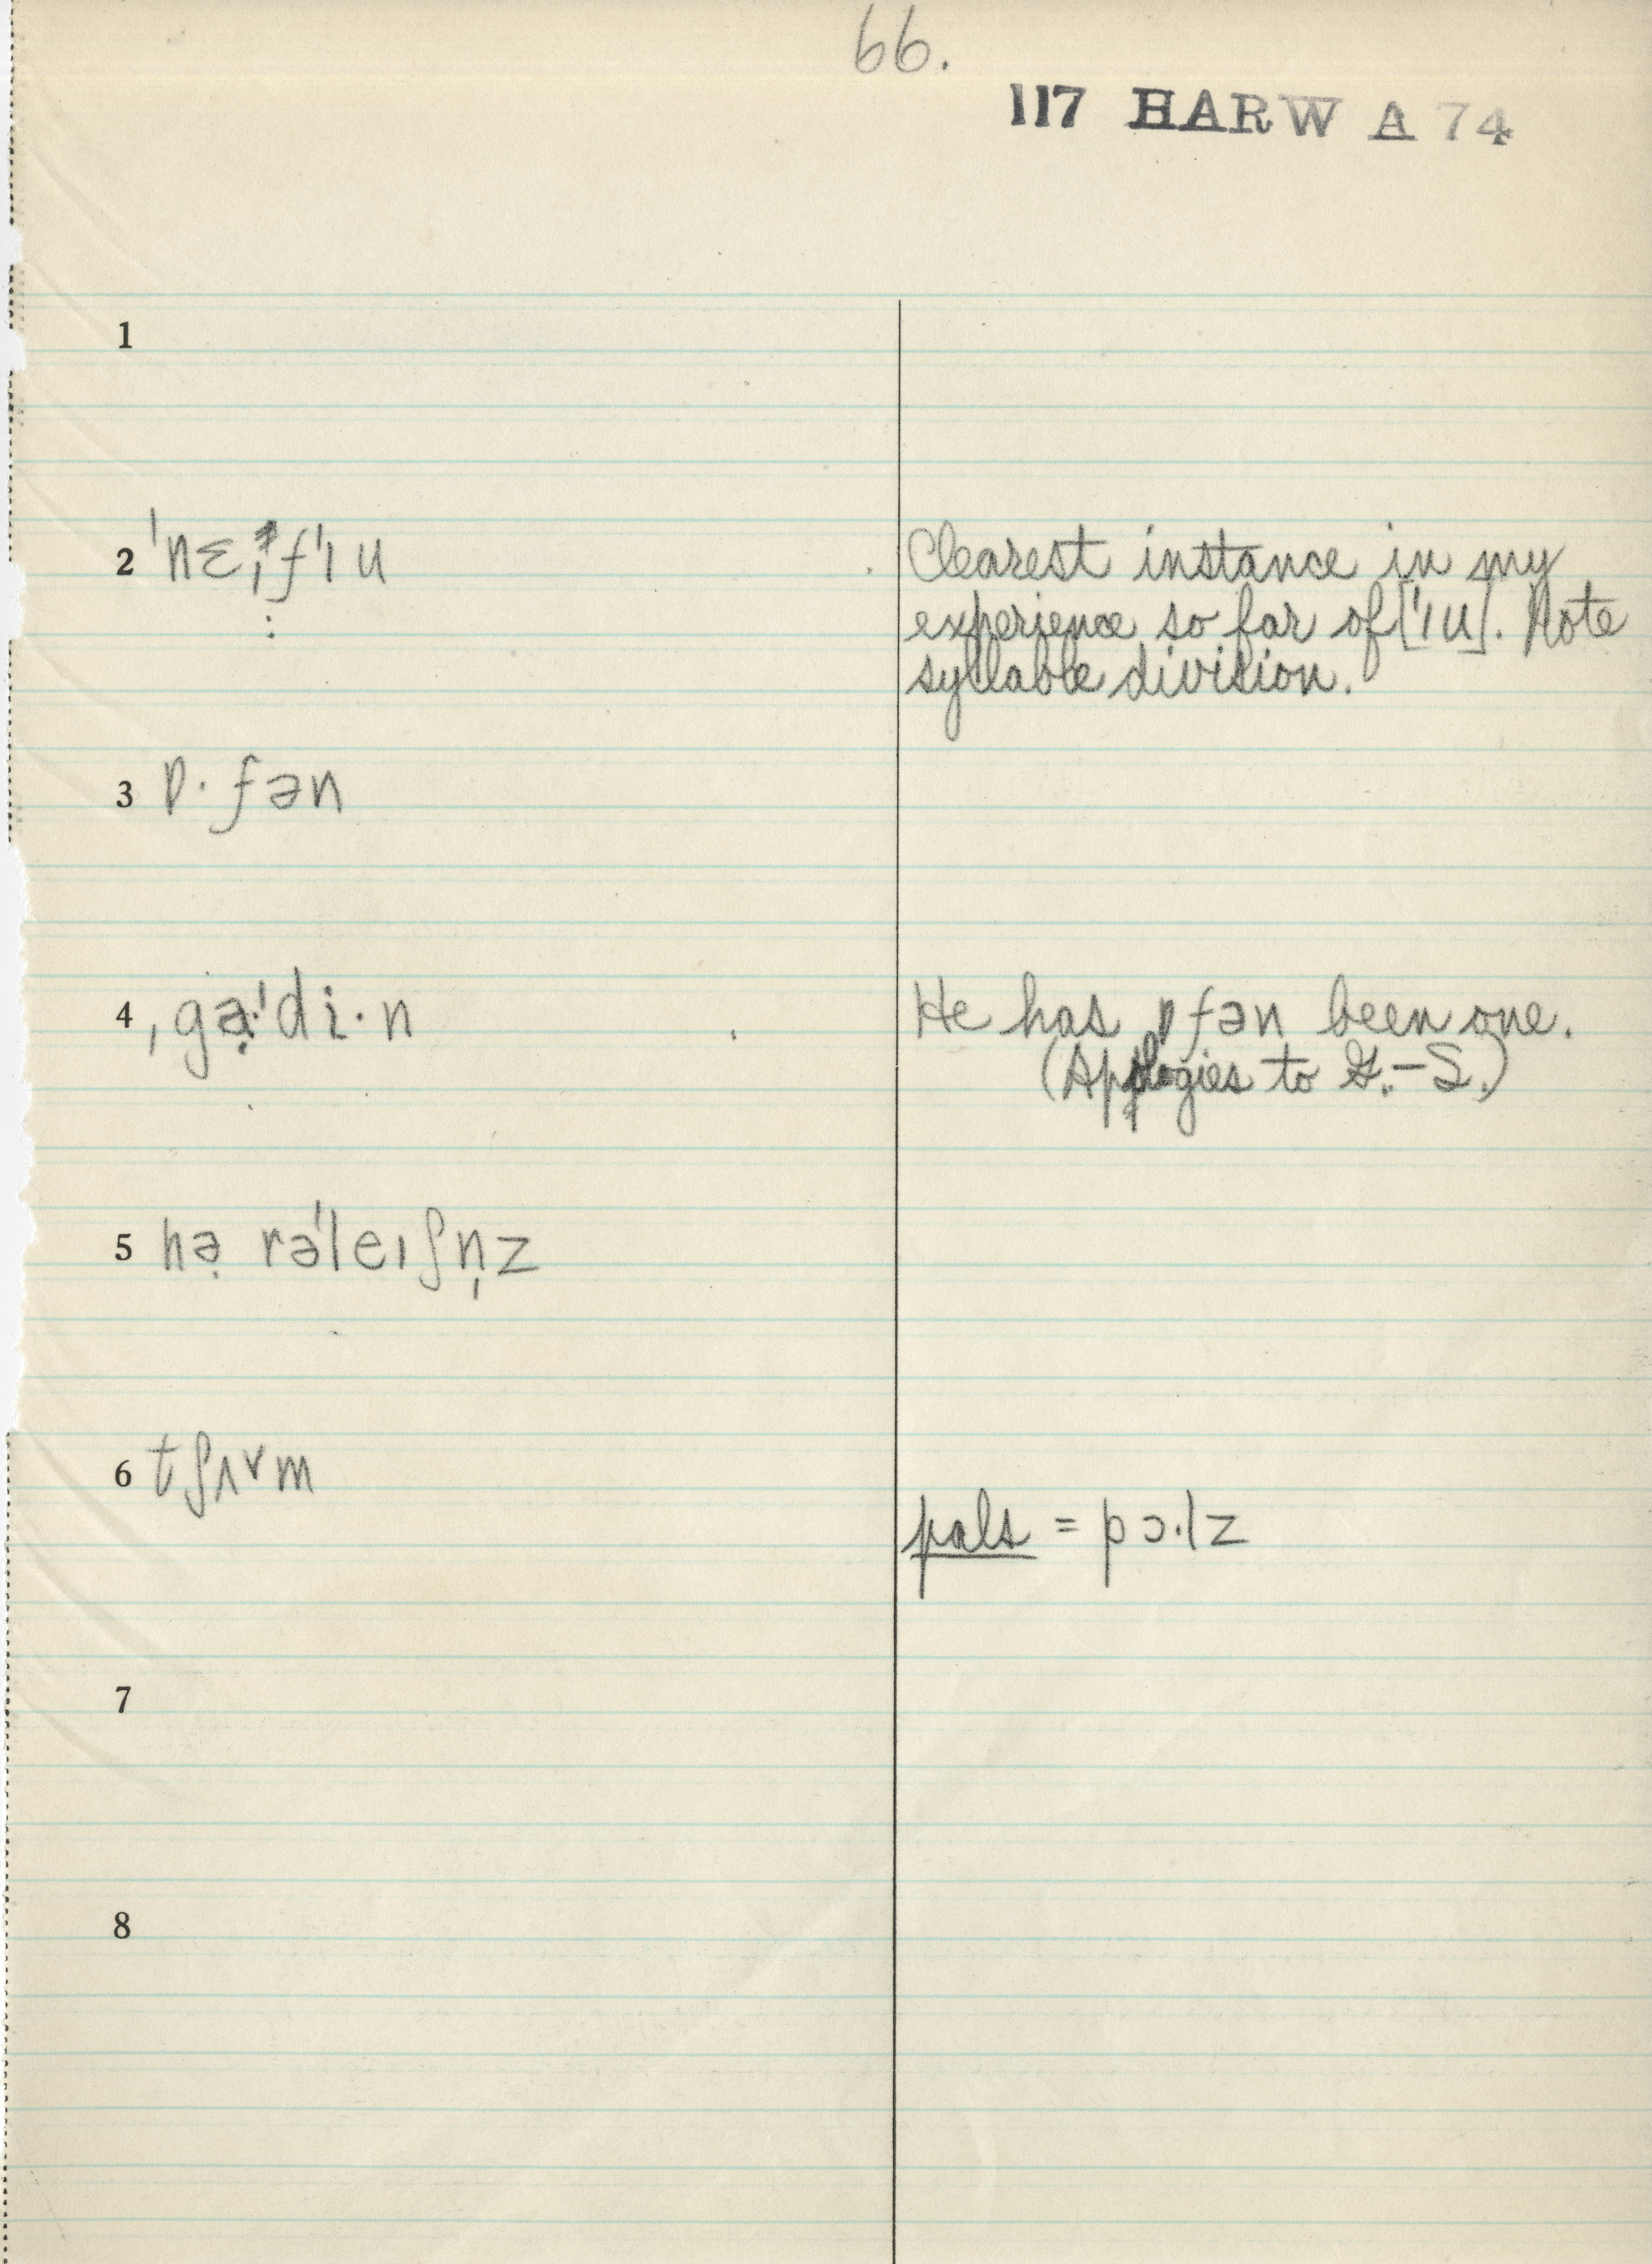 66.
117 HARW A 74
1
2 ˈnɛ,fˈɪu
Clearest instance in my
experience so far of [ˈɪu]. Note
syllable division.
3 ɒ·fən
4 ˌgə̣·ˈdi·n
He has ɒfən been one.
(Apologies to G.-S.)
5 hə̣ rəˈleɪʃn̩z
6 tʃʌ˅m
pals = pɔ·lz
7
8